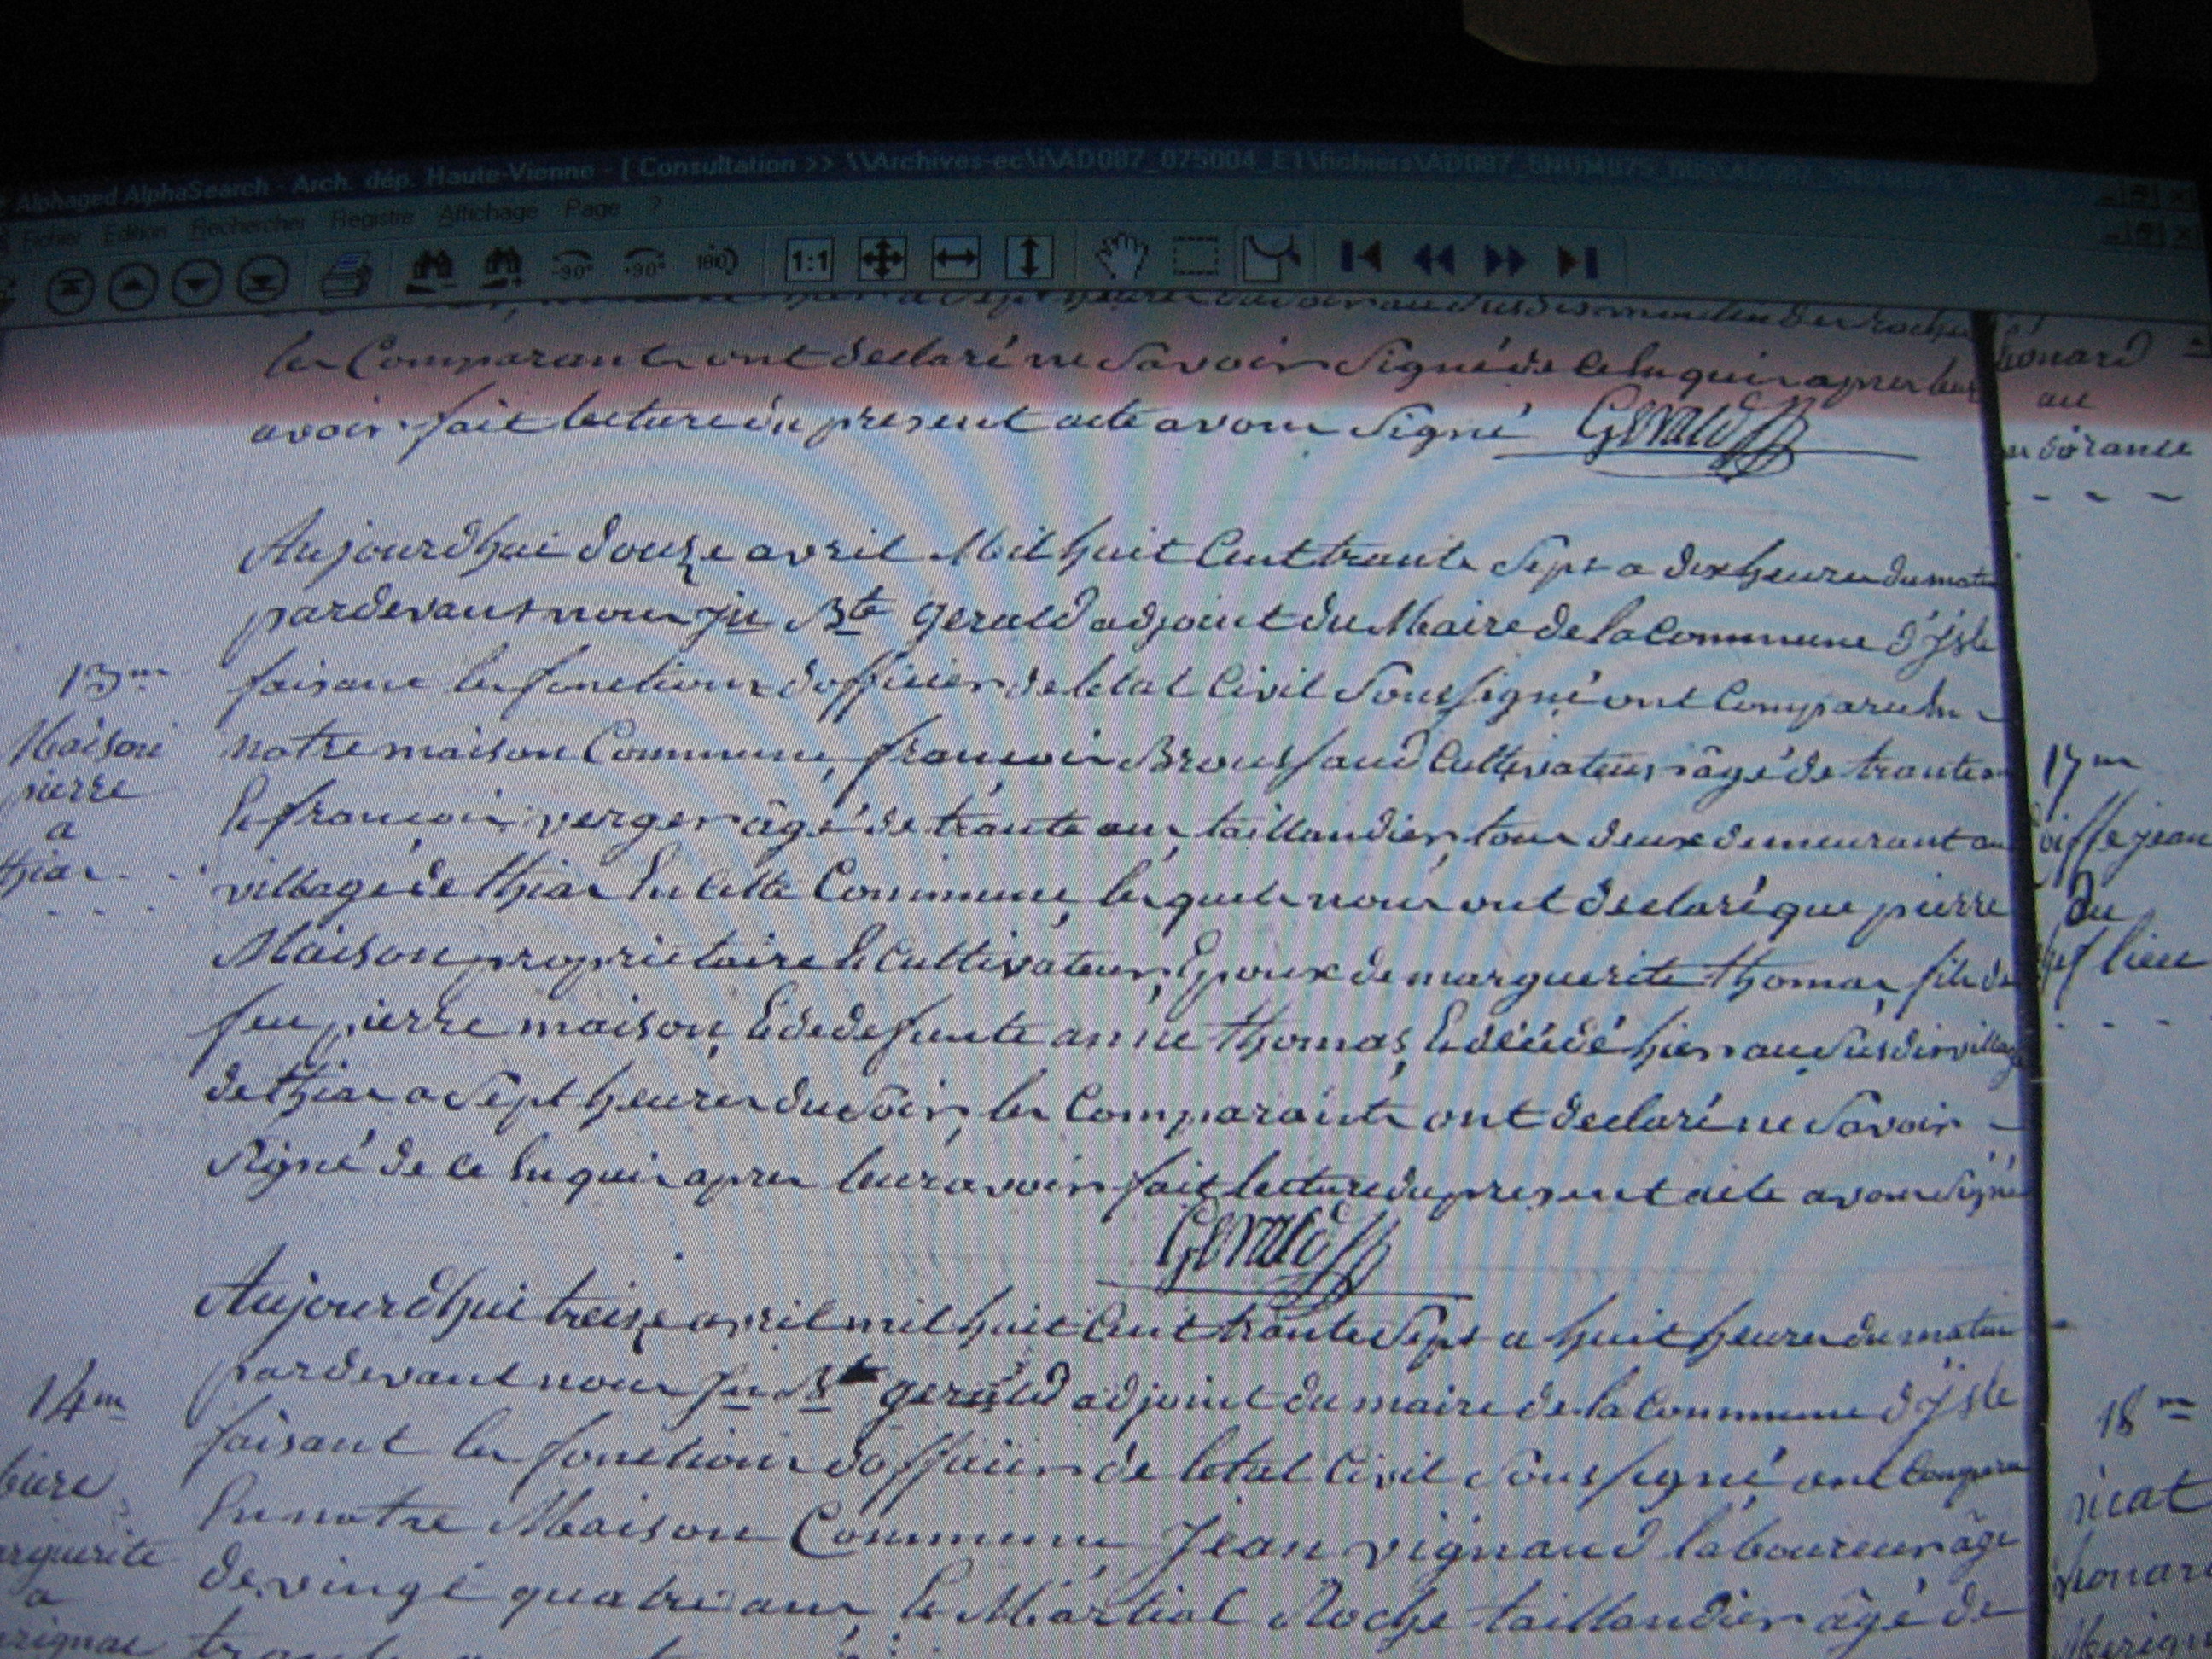 Alphaged AlphaSearch - Arch. dép. Haute-Vienne - [ Consultation >> \\Archives-ec\i\AD087_075004_E1\fichiers\AD087
Fichier Edition Rechercher Registre Affichage Page ?
-90° +90° 180 1:1
les Comparants ont declaré ne Savoir Signé de ce Enquis apres leur
avoir fait lecture du present acte avons Signé Gerald
Aujourdhui douze avril Mil huit Cent trante Sept a dix heures du matin
pardevant nous Jn Bte gerald adjoint du Maire de la Commune d'Jsle
13me
faisant les fonctions dofficier de letat Civil Soussigné ont Comparu En
Maison
pierre
a
thias
notre maison Commune, françois Broussaud Cultivateur âgé de trante
Et françois verger âgé de trante ans taillandier, tous deux demeurant au
village de thias En Cette Commune, lesquels nous ont declaré que pierre
Maison proprietaire Et Cultivateur, Epoux de marguerite thomas, fils de
feu pierre maison, Et de defunte anne thomas, Et décédé hier au Susdit village
de thias a Sept heures du Soir, les Comparants ont declaré ne Savoir
Signé de ce Enquis apres leur avoir fait lecture du present acte avons Signé
Gerald
Aujourdhui treize avril mil huit Cent trante Sept a huit heures du matin
14me
pardevant nous Jn Bte gerald adjoint du maire de la Commune d'Jsle
faisant les fonctions dofficier de letat Civil Soussigné ont Comparu
En notre Maison Commune Jean vignaud laboureur âgé
de vingt quatre ans, Et Martial Roche taillandier âgé de
au
17me
jean
du
lieu
18me